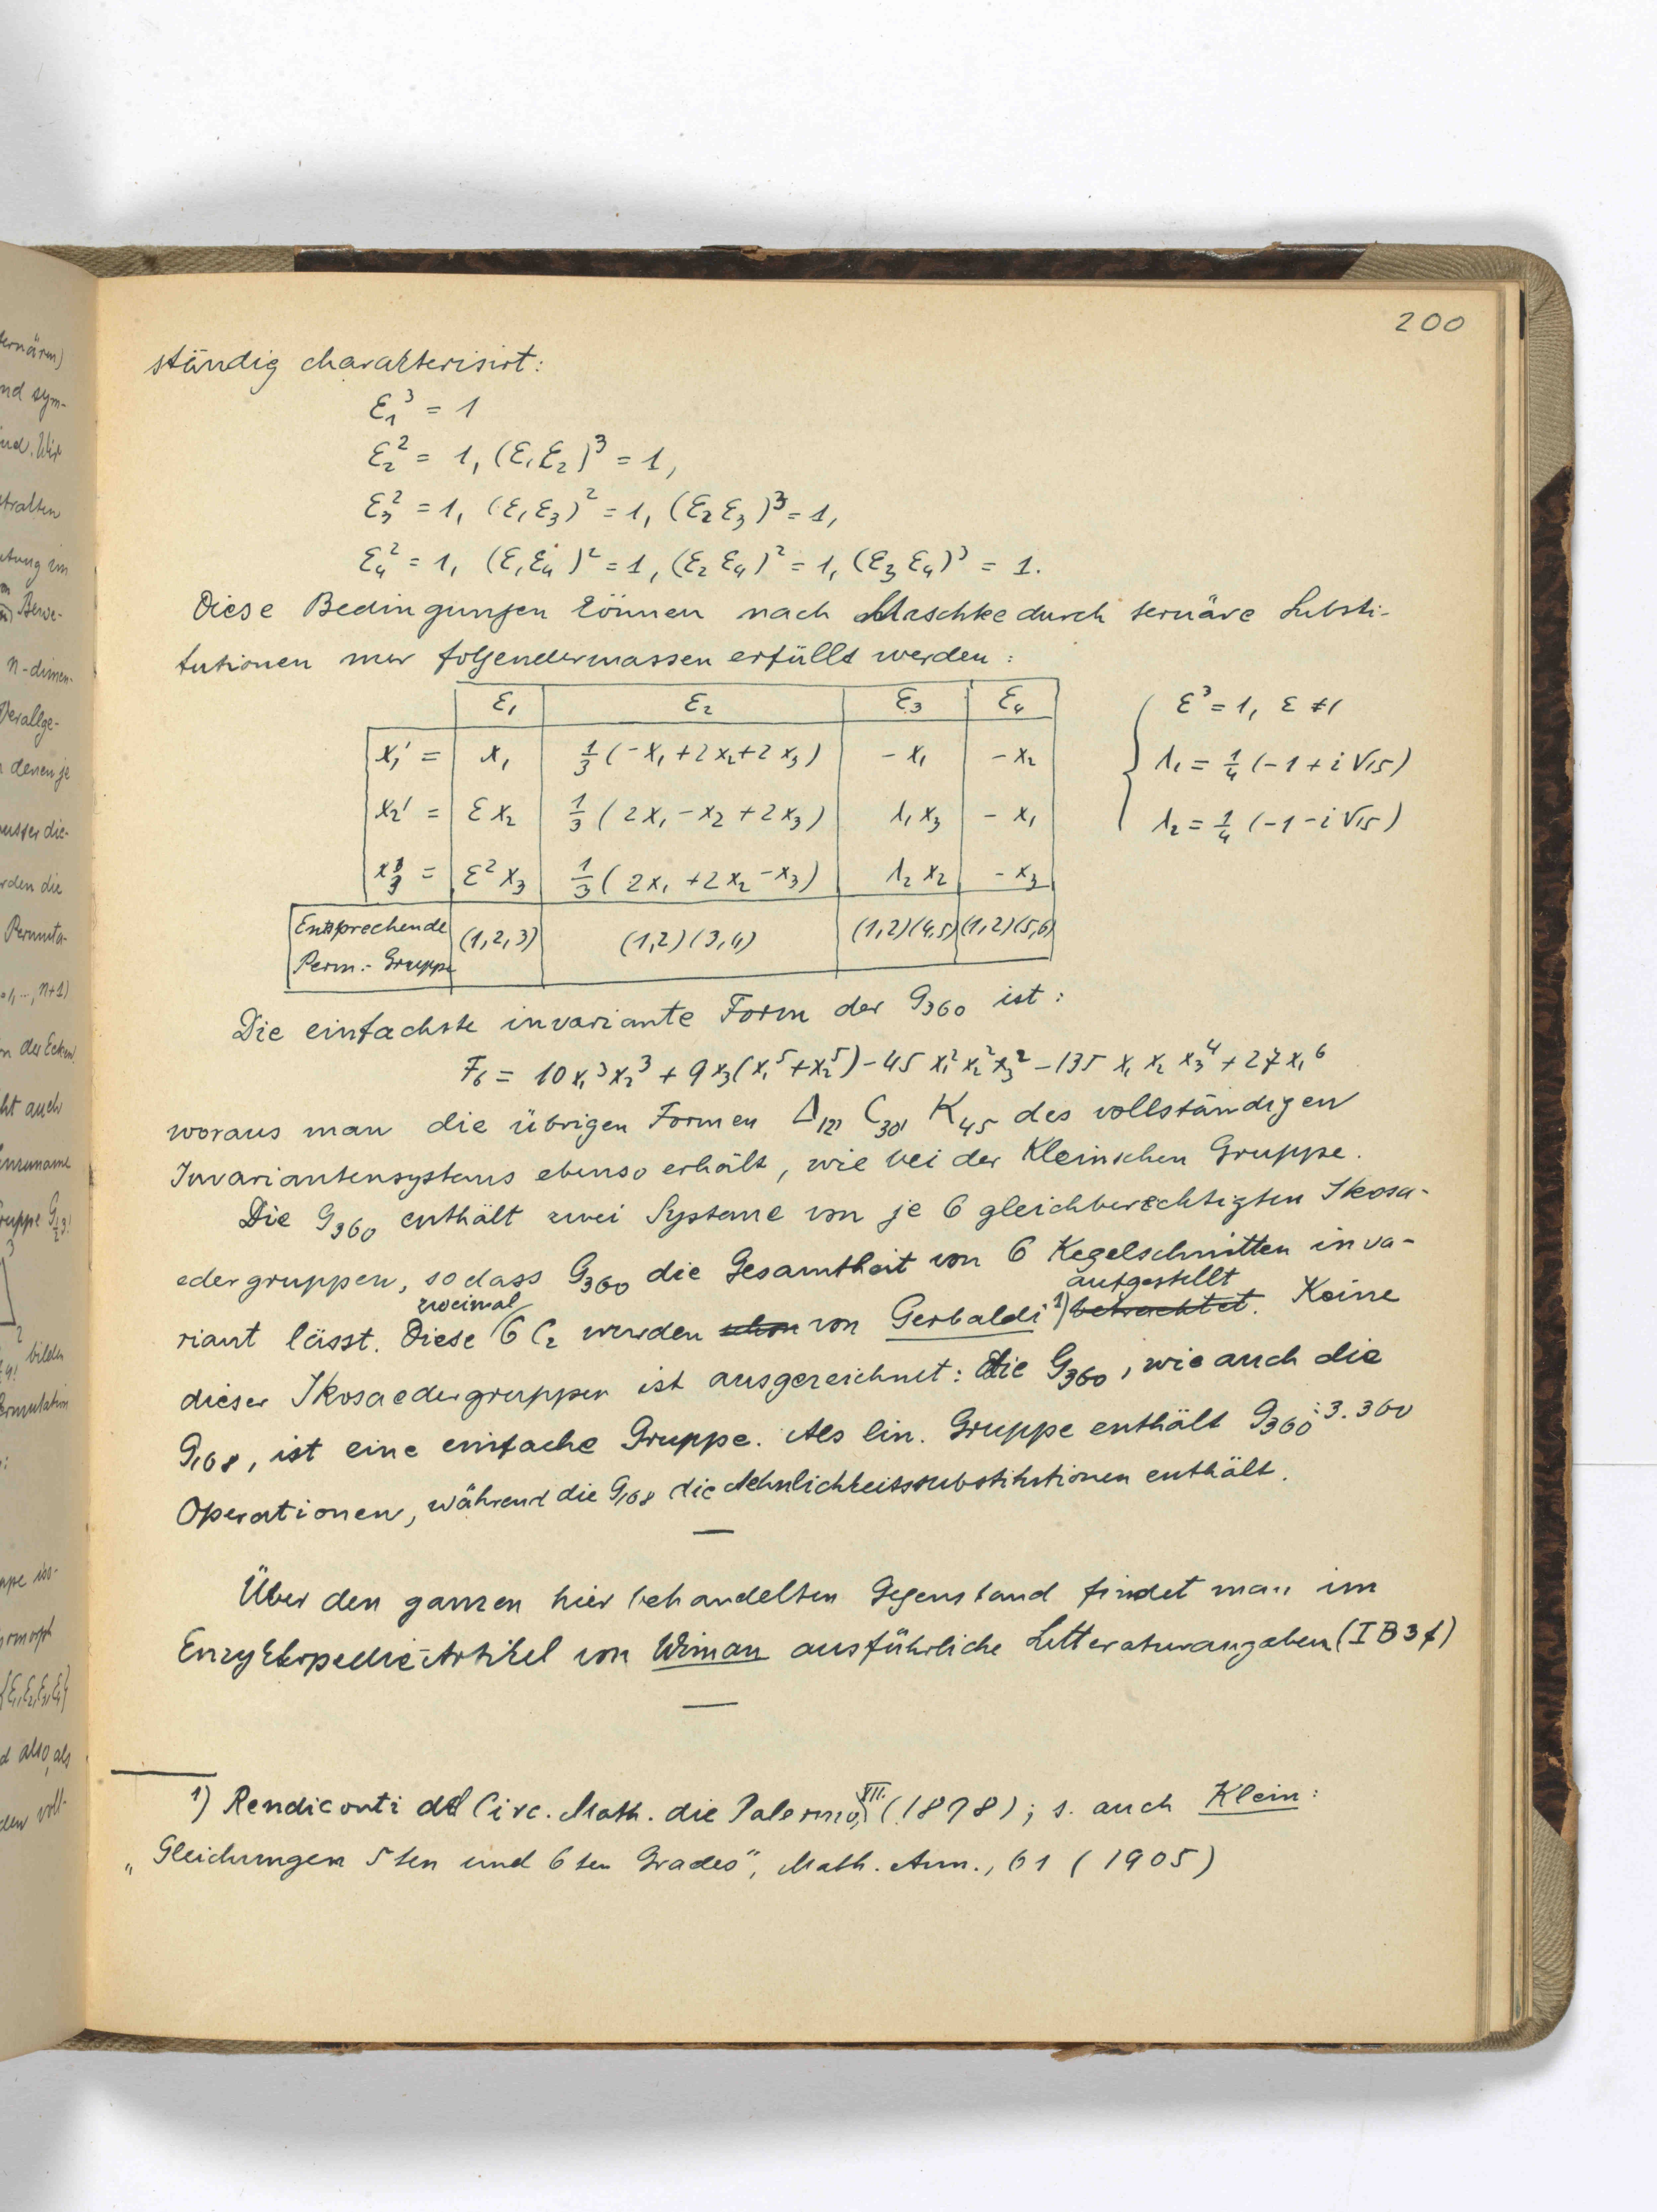 200
ständig charakterisirt:
ε₁³ = 1
ε₂² = 1, (ε₁ε₂)³ = 1,
ε₃² = 1, (ε₁ε₃)² = 1, (ε₂ε₃)³ = 1,
ε₄² = 1, (ε₁ε₄)² = 1, (ε₂ε₄)² = 1, (ε₃ε₄)³ = 1.
Diese Bedingungen können nach Maschke durch ternäre Substi-
tutionen nur folgendermassen erfüllt werden:
ε₁ ε₂ ε₃ ε₄
x₁' = x₁ 1/3(-x₁+2x₂+2x₃) -x₁ -x₂
x₂' = εx₂ 1/3(2x₁-x₂+2x₃) λ₁x₃ -x₁
x₃' = ε²x₃ 1/3(2x₁+2x₂-x₃) λ₂x₂ -x₃
Entsprechende
Perm.-Gruppe (1,2,3) (1,2)(3,4) (1,2)(4,5) (1,2)(5,6)
ε³ = 1, ε ≠ 1
λ₁ = 1/4 (-1+i√15)
λ₂ = 1/4 (-1-i√15)
Die einfachste invariante Form der G₃₆₀ ist:
F₆ = 10x₁³x₂³ + 9x₃(x₁⁵+x₂⁵) - 45 x₁²x₂²x₃² - 135 x₁x₂x₃⁴ + 27x₁⁶
woraus man die übrigen Formen Δ₁₂, C₃₀, K₄₅ des vollständigen
Invariantensystems ebenso erhält, wie bei der Kleinschen Gruppe.
Die G₃₆₀ enthält zwei Systeme von je 6 gleichberechtigten Ikosa-
edergruppen, sodass G₃₆₀ die Gesamtheit von 6 Kegelschnitten inva-
riant lässt. Diese zweimal 6 C₂ wurden schon von Gerbaldi ¹) betrachtet aufgestellt. Keine
dieser Ikosaedergruppen ist ausgezeichnet: Die G₃₆₀, wie auch die
G₁₆₈, ist eine einfache Gruppe. Als lin. Gruppe enthält G₃₆₀: 3.360
Operationen, während die G₁₆₈ die Aehnlichkeitssubstitutionen enthält.
Über den ganzen hier behandelten Gegenstand findet man im
Enzyklopedie-Artikel von Wiman ausführliche Litteraturangaben (I B 3 f)
¹) Rendiconti del Circ. Math. die Palermo, XII. (1898); s. auch Klein:
„Gleichungen 5ten und 6ten Grades", Math. Ann., 61 (1905)